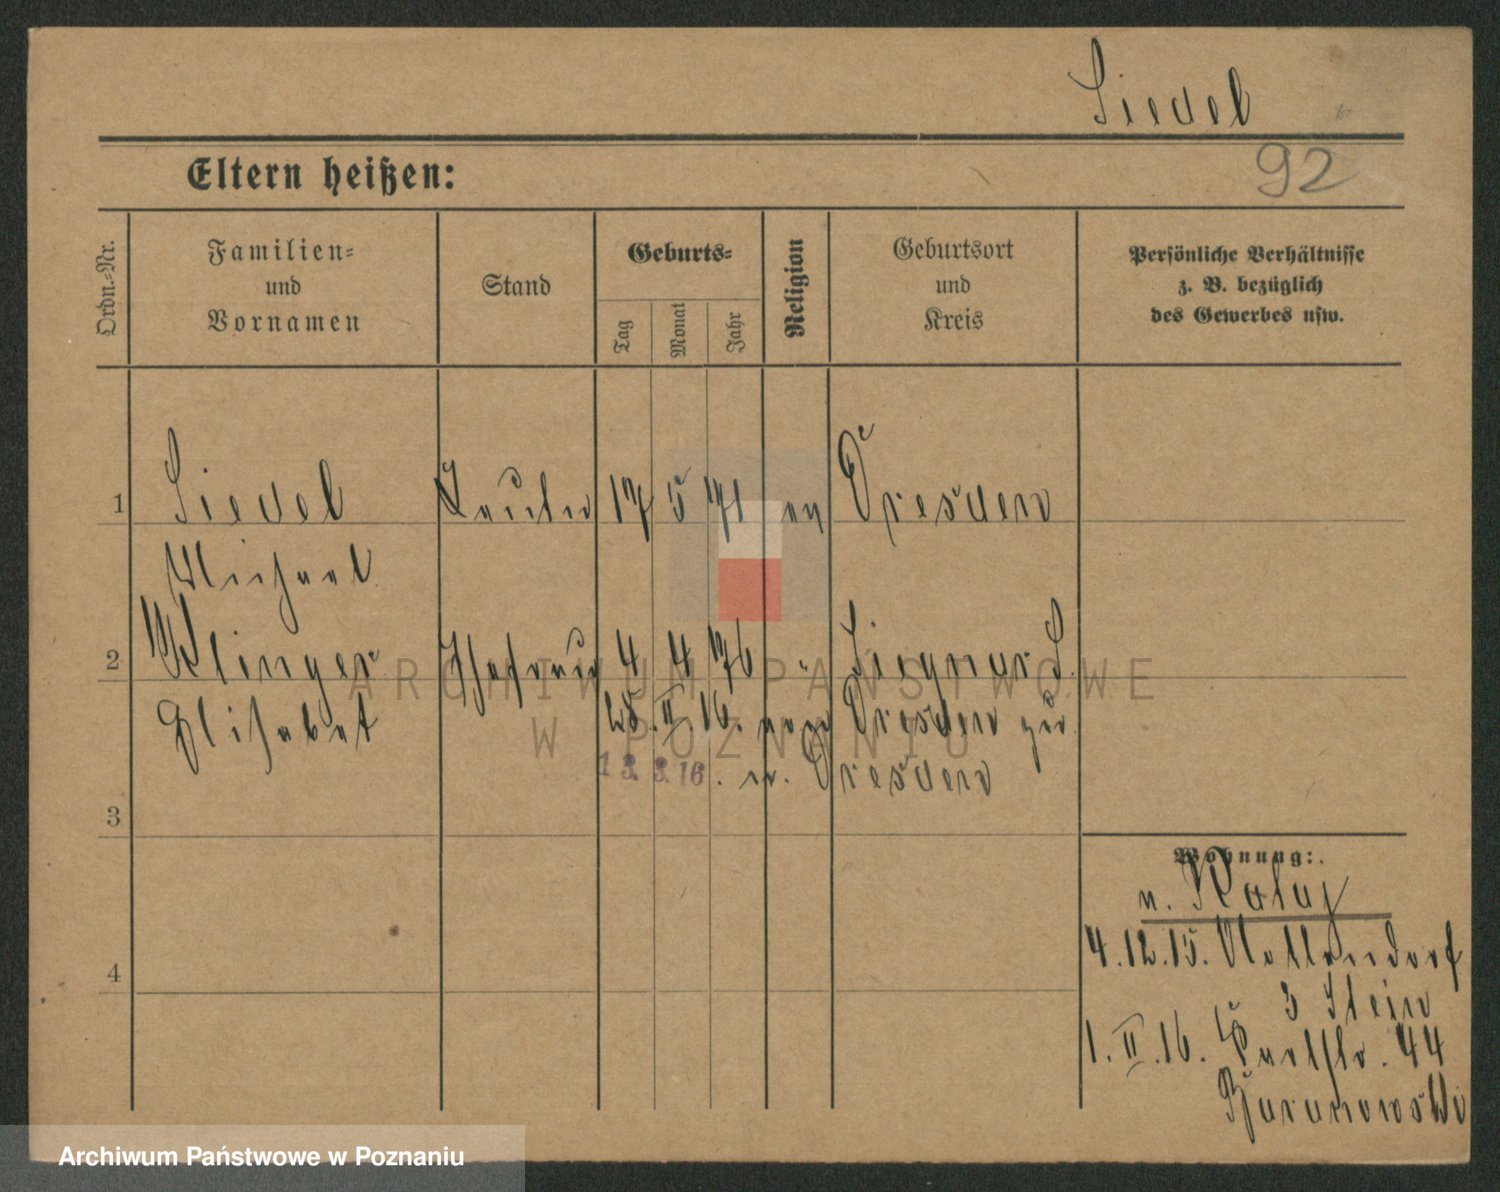 Siedel
Eltern heißen:
92
Ordn.-Nr.
Familien-
und
Vornamen
Stand
Geburts-
Tag
Monat
Jahr
Religion
Geburtsort
und
Kreis
Persönliche Verhältnisse
z. B. bezüglich
des Gewerbes usw.
1 Siedel 17 5 71 ev Dresden
Michael
2 Klinger Ehefrau 4 4 76 "
Elisabet 25. II. 16. von Dresden zur.
13. 3. 16. n. Dresden
3
4
Wohnung:
n.
4.12.15. Nollendorf
3 Stein
1. II. 16. 44
Baranowski
ARCHIWUM PAŃSTWOWE
W POZNANIU
Archiwum Państwowe w Poznaniu